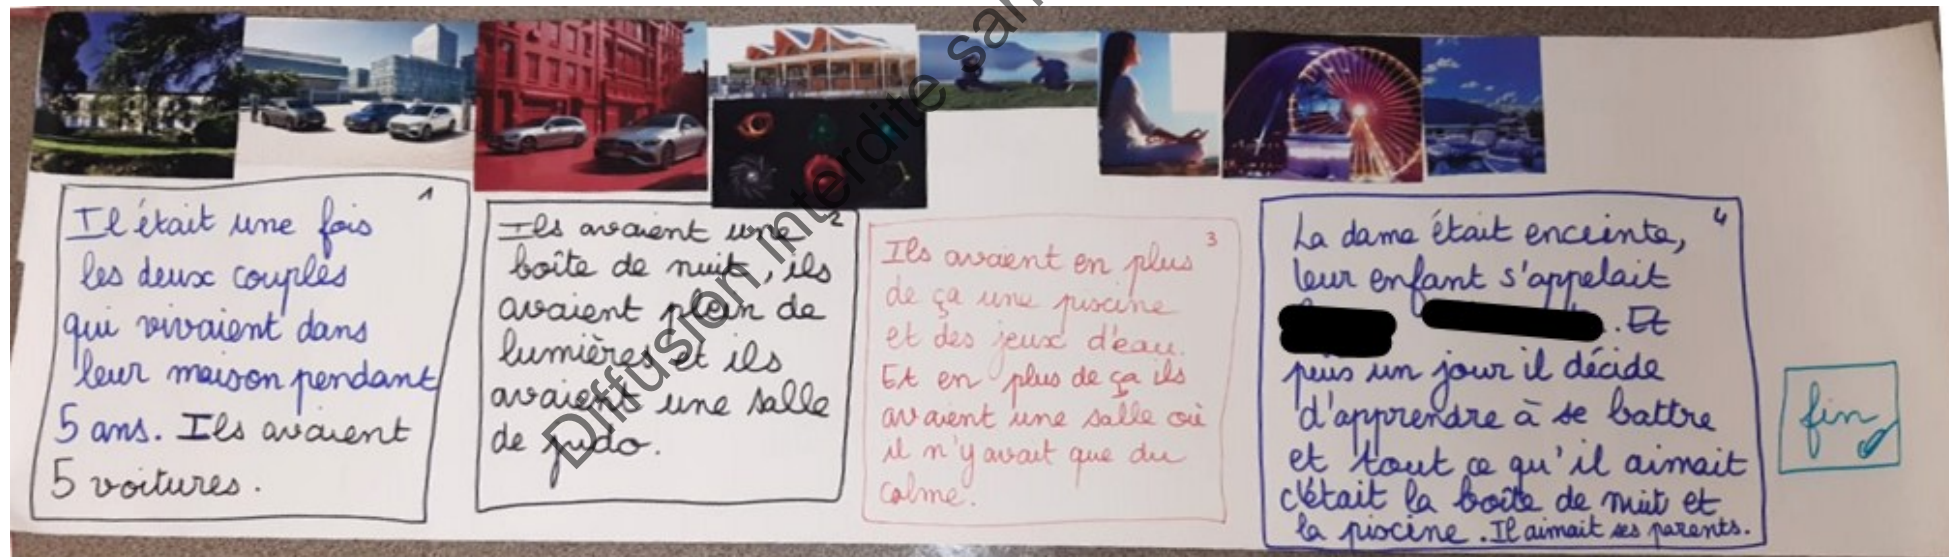 1
Il était une fois
les deux couples
qui vivaient dans
leur maison pendant
5 ans. Ils avaient
5 voitures.
2
Ils avaient une
boîte de nuit, ils
avaient plein de
lumières et ils
avaient une salle
de judo.
3
Ils avaient en plus
de ça une piscine
et des jeux d'eau.
Et en plus de ça ils
avaient une salle où
il n'y avait que du
calme.
4
La dame était enceinte,
leur enfant s'appelait
. Et
puis un jour il décide
d'apprendre à se battre
et tout ce qu'il aimait
c'était la boîte de nuit et
la piscine. Il aimait ses parents.
fin
Diffusion interdite